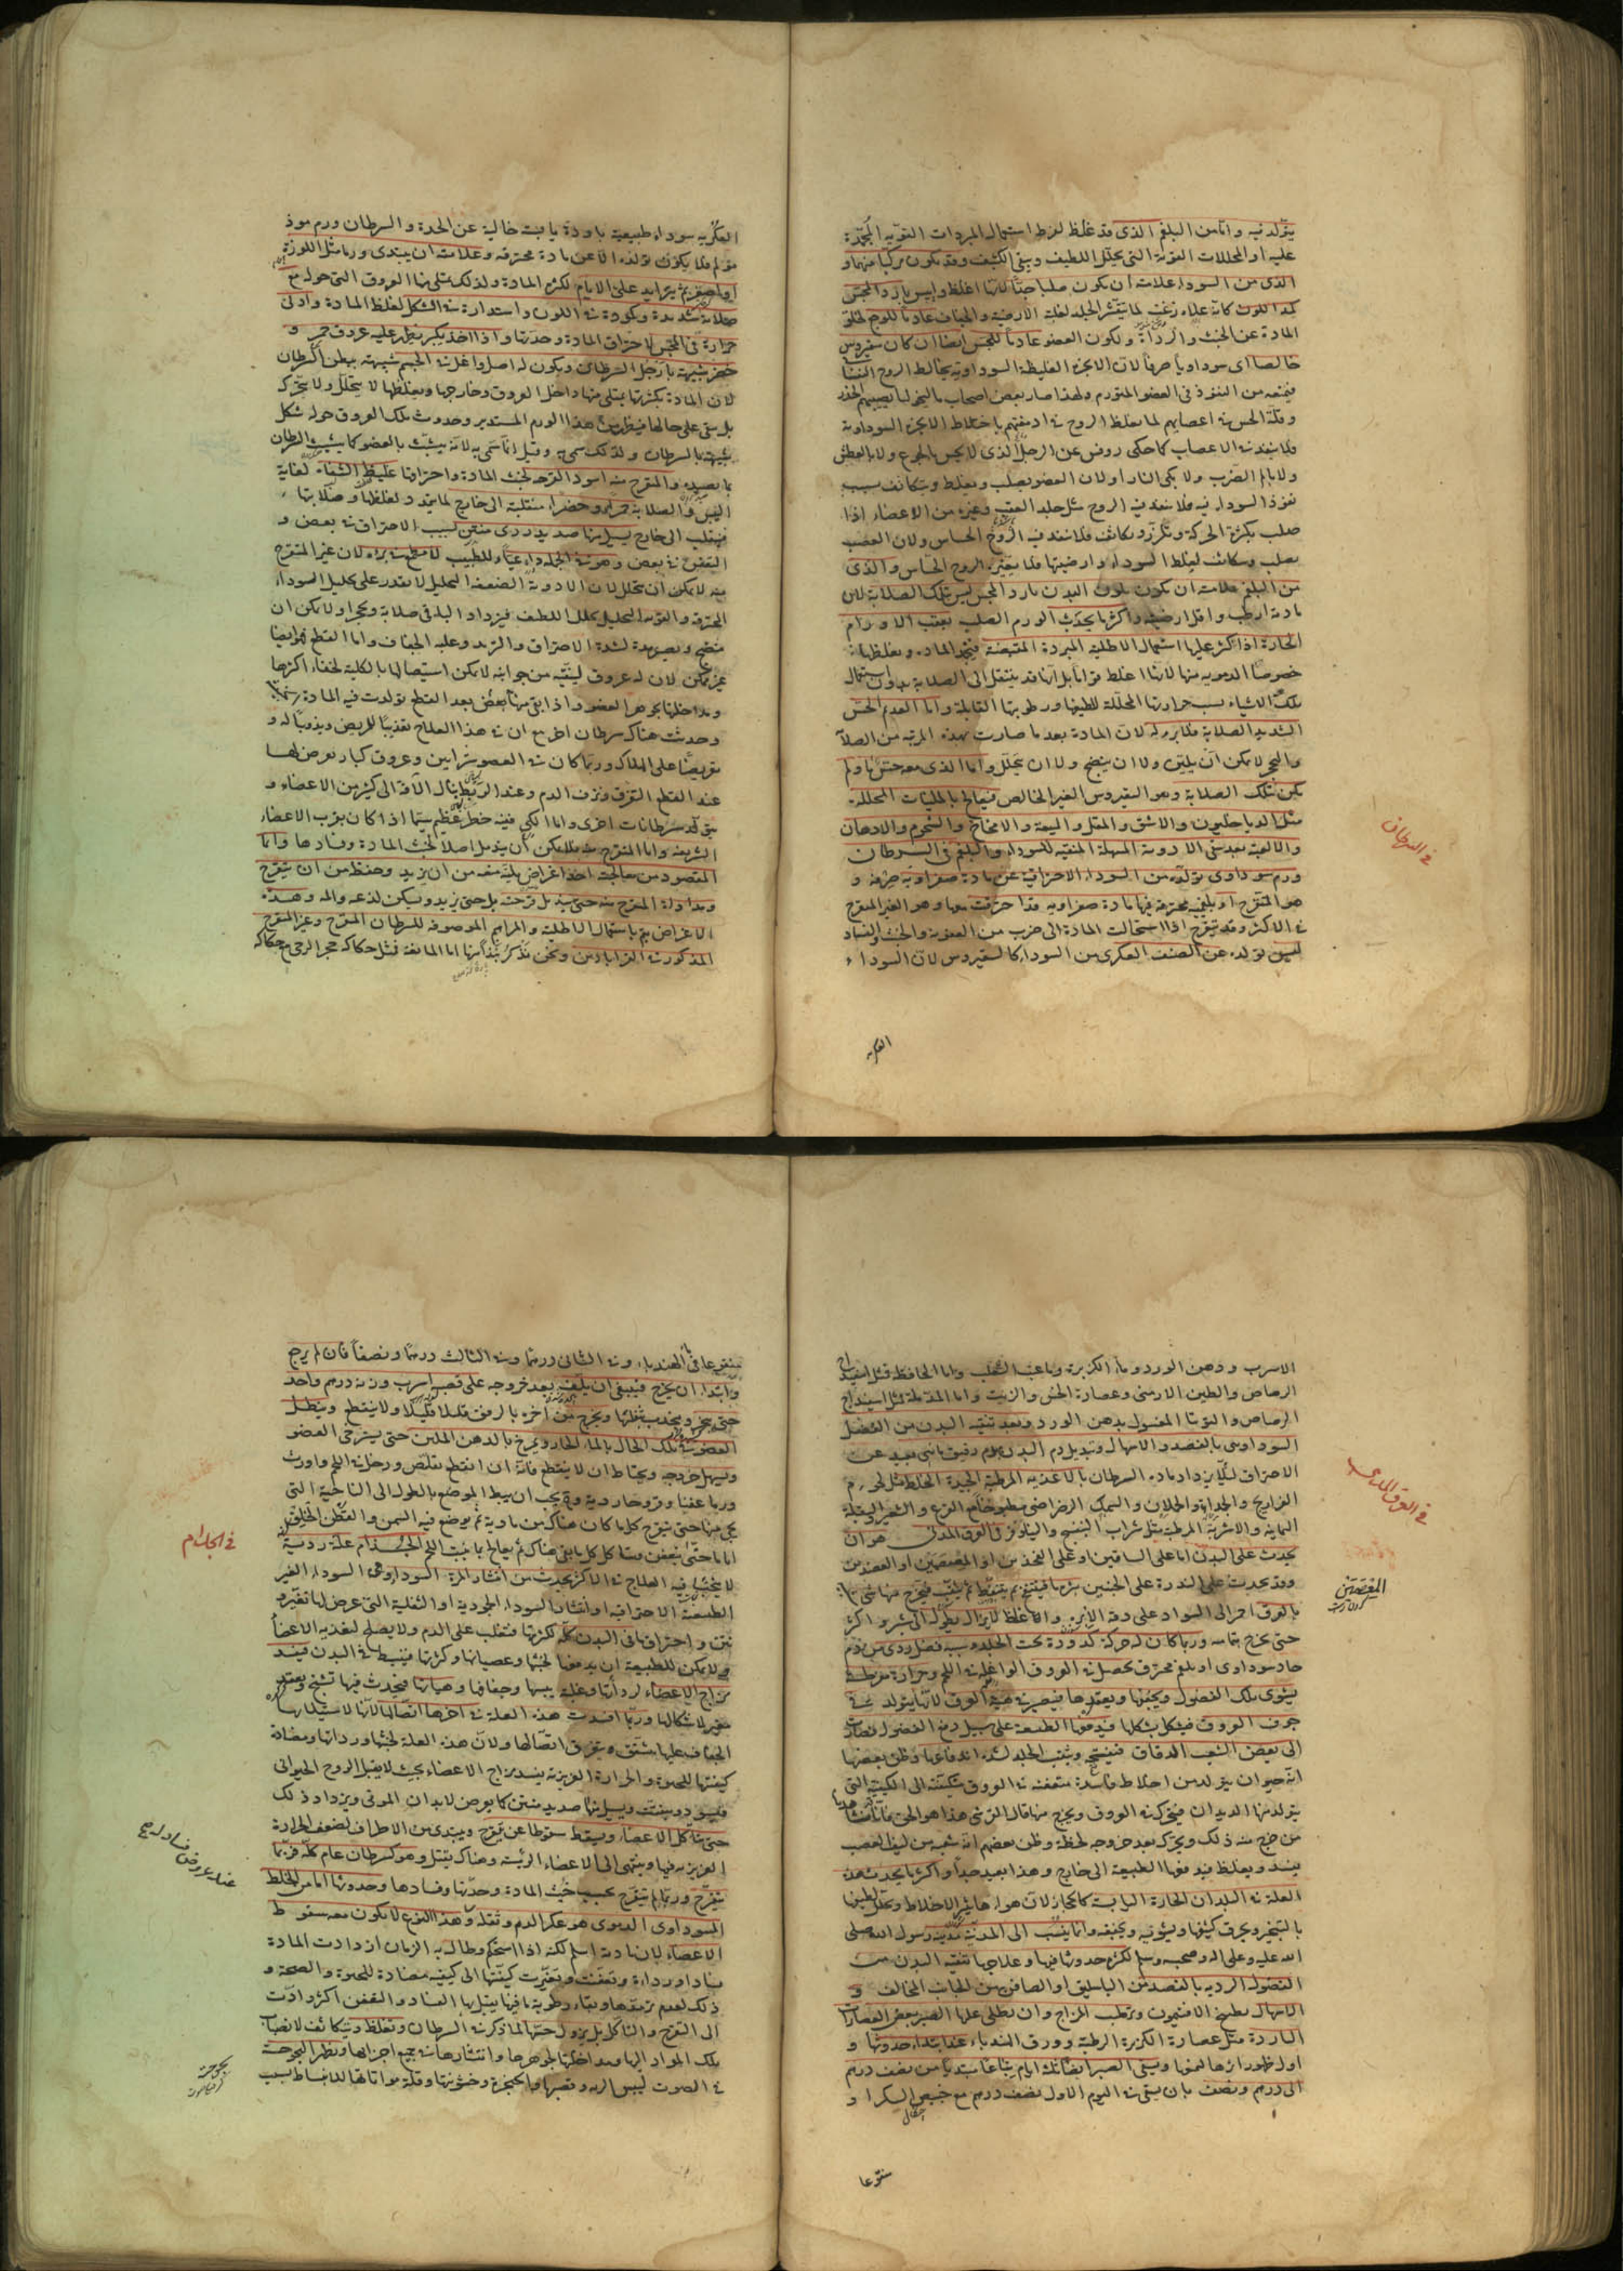 يتولد فيه واما من البلغم الذى قد غلظ لفرط استعمال المبردات القوية المجمدة
عليه او المحللات القوية التى تحلل اللطيف ويبقى الكثيف وقد يكون مركبا منهما و
الذى من السوداء علامته ان يكون صلبا جدا لانها اغلظ وايبس بارد المجس
كمد اللون كانه علاه زغب لما يتقشر الجلد لغلبة الارضية والجفاف عادما للوجع لخلو
المادة عن الخبث والرداءة ويكون العضو عادما للحس ايضا ان كان سقيروس
خالصا اى سوداويا صرفا لان الابخرة الغليظة السوداوية يخالط الروح النفسانى
فيمنعه من النفوذ فى العضو المتورم ولهذا صار بعض اصحاب مالنخوليا يصيبهم الخدر
وقلة الحس فى اعصابهم لما يغلظ الروح فى ادمغتهم باختلاط الابخرة السوداوية
فلا ينفذ فى الاعصاب كما حكى روفس عن الرجل الذى لا يحس بالجوع ولا بالعطش
ولا بالم الضرب ولا بكى النار او لان العضو يصلب ويغلظ ويتكاثف بسبب
نفوذ السوداء فيه فلا ينفذ فيه الروح مثل جلد العقب وغيره من الاعضاء اذا
صلب بكثرة الحركة وتكزز وتكاثف فلا ينفذ فيه الروح الحساس ولان العصب
يصلب ويتكاثف لغلظ السوداء وارضيتها فلا يغيره الروح الحساس والذى
من البلغم علامته ان يكون بلون البدن بارد المجس ليس بتلك الصلابة لان
مادته ارطب واقل ارضية واكثر ما يحدث الورم الصلب بعقب الاورام
الحارة اذا اكثر عليها استعمال الاطلية المبردة المقبضة فيتحجر المادة ويغلظها
خصوصا الدموية منها لانها اغلظ قواما بل انها قد ينتقل الى الصلابة بدون استعمال
تلك الاشياء بسبب حرارتها المحللة للطيفها ورطوبتها القابلة واما العديم الحس
الشديد الصلابة فلا برء له لان المادة بعد ما صارت بهذه المرتبة من الصلابة
والتحجر لا يمكن ان يلين ولا ان ينضج ولا ان يتحلل واما الذى معه حس ما ولم
يكن بتلك الصلابة وهو السقيروس الغير الخالص فيعالج بالملينات المحللة
مثل الدياخليون والاشق والمقل والميعة والامخاخ والشحوم والادهان
والالعبة بعد تنقى الادوية المسهلة المنقية للسوداء والبلغم فى السرطان
ورم سوداوى تولده من السوداء الاحتراقية عن مادة صفراوية حريفة و
هو المتقرح او بلغمية محترقة فيها مادة صفراوية قد احترقت معها وهو الغير المتقرح
فى الاكثر وقد يتقرح اذا استحالت المادة الى ضرب من العفونة والخبث والفساد
ليس تولده عن الصنف العكرى من السوداء كالسقيروس لان السوداء
العكرية
فى السرطان
العكرية سوداء طبيعية باردة يابسة خالية عن الحدة والسرطان ورم موذ
مولم فلا يكون تولده الا عن مادة محترقة وعلامته ان يبتدى ورما مثل اللوزة
او اصغر ثم يتزايد على الايام لكثرة المادة ولذلك يمتلى منها العروق التى حوله مع
صلابة شديدة وكمودة فى اللون واستدارة فى الشكل لغلظ المادة وادنى
حرارة فى المجس لاحتراق المادة وحدتها واذا اخذ يكبر يظهر عليه عروق حمر و
خضر شبيهة بارجل السرطان ويكون له اصل واغل فى الجسم شبيهة ببطن السرطان
لان المادة بكثرتها يمتلى منها داخل العروق وخارجها وبغلظها لا يتحلل ولا يتحرك
بل يبقى على حالها فيظهر من هذا الورم المستدير وحدوث تلك العروق حوله شكل
شبيه بالسرطان ولذلك سمى به وقيل انما سمى به لانه يتشبث بالعضو كما يتشبث السرطان
بما يصيده والمتقرح منه اسود القرحة لخبث المادة واحتراقها غليظ الشفاه لغاية
اليبس والصلابة حمر او خضر منقلبة الى خارج لما يتمدد لغلظها وصلابتها
فينقلب الى خارج يسيل منها صديد ردى منتن لسبب الاحتراق فى بعض و
التعفن فى بعض وهو فى الجملة داء عياء وللطبيب لا مطمع فى برئه لان غير المتقرح
منه لا يمكن ان يتحلل لان الادوية الضعيفة التحليل لا يقدر على تحليل السوداء
المحترقة والقوية التحليل يحلل اللطيف فيزداد الباقى صلابة وتحجرا ولا يمكن ان
ينضج
غير ممكن لان له عروق ليفية من جوانبه لا يمكن استيصالها بالكلية لخفاء اكثرها
ومداخلتها بجوهر العضو واذا بقى منها بعض بعد القطع تولدت فيه المادة
وحدثت هناك سرطان اخر مع ان فى هذا العلاج تعذيبا للمريض وتذويبا له و
تعريضا على الهلاك وربما كان فى العضو شرايين وعروق كبار يعرض لها
عند القطع النزف ونزف الدم وعند الربط ينال الآفة الى كثير من الاعضاء و
يتولد سرطانات اخرى واما الكى ففيه خطر عظيم سيما اذا كان بقرب الاعضاء
الشريفة واما المتقرح منه فلا يمكن ان يندمل اصلا لخبث المادة وفسادها وانما
المقصود من معالجته احد اغراض ثلثة منعه من ان يزيد وحفظه من ان يتقرح
ومداواة المتقرح منه
الاغراض يتم باستعمال الاطلية والمراهم الموصوفة للسرطان المتقرح وغير المتقرح
المذكورة فى القراباذين ونحن نذكر نبذا منها اما المانعة فمثل حكاكة حجر الرحى مع حكاكة
الاسرب ودهن الورد وماء الكزبرة وماء عنب الثعلب واما الحافظة فمثل اسفيداج
الرصاص والطين الارمنى وعصارة الخس والزيت واما المدملة فمثل اسفيداج
الرصاص والتوتيا المغسول بدهن الورد وبعد تنقية البدن من الفضل
السوداوى بالفصد والاسهال وتبديل دم البدن بدم رقيق مائى بعيد عن
الاحتراق لئلا يزداد مادة السرطان بالاغذية المرطبة الجيدة الخلط مثل لحوم
الفراريج والجداء والحملان والسمك الرضراضى مطبوخا مع القرع والشعير والبقلة
اليمانية والاشربة المرطبة مثل شراب البنفسج والنيلوفر فى العرق المدنى هو ان
يحدث على البدن اما على الساقين او على الفخذين او المعصمين او العضدين
وقد يحدث على الندرة على الجنبين بثرة فينتفخ ثم يتنفط ثم يثقب فيخرج منها شى
بالعرق احمر الى السواد على دقة الابرة واغلظ لا يزال يطول الى شبر او اكثر
حتى يخرج بتمامه وربما كان له حركة كدودة تحت الجلد وسببه فضل ردى من دم
حاد سوداوى او بلغم محترق يحصل فى العروق الواغلة فى اللحم وحرارة مفرطة
يشوى تلك الفضول ويجففها ويعقدها فيصير فى هيئة العرق لانها يتولد فى
جوف العروق فيتشكل بشكلها فيدفعها الطبيعة على سبيل دفع الفضول
الى بعض الشعب الدقاق فينتفخ ويثقب الجلد لشدة اندفاعها وظن بعضهم
انه حيوان يتولد من اخلاط فاسدة متعفنة فى العروق مستحيلة الى الكيفية التى
يتولد منها الديدان فيتحرك فى العروق ويخرج منها قال القرشى هذا هو الحق
من خرج منه ذلك ويتحرك بعد خروجه لحظة وظن بعضهم انه شعبة من ليف العصب
يفسد ويغلظ فيدفعها الطبيعة الى خارج وهذا بعيد جدا واكثر ما يحدث هذه
العلة فى البلدان الحارة اليابسة كالحجاز لان هواءها
بالتبخير ويحرق كثيفها ويشويه ويجففه وانما ينسب الى المدينة مدينة رسول الله صلى
الله عليه وعلى اله وصحبه وسلم لكثرة حدوثها فيها وعلاجها تنقية البدن من
الفضول الردية بالفصد من الباسليق او الصافن من الجانب المخالف و
الاسهال بطبيخ الافتيمون وترطيب المزاج وان يطلى عليها الصبر ببعض العصارات
الباردة مثل عصارة الكزبرة الرطبة وورق الهندباء عند ابتداء حدوثها و
اول ظهور اثرها لمنعها ويسقى الصبر ايضا ثلثة ايام تباعا مبتديا من نصف درهم
الى درهم ونصف بان يسقى فى اليوم الاول نصف درهم مع خبيص السكر او
منقوعا
فى العرق المدنى
المعصمين
منقوعا فى الهندباء وفى الثانى درهما وفى الثالث درهما ونصفا فان لم يرجع
وابتداء ان يخرج فينبغى ان يلف بعد خروجه على قصبة اسرب وزنه درهم واحد
حتى ينجر وينجذب بثقلها ويخرج من آخره بالرفق قليلا قليلا ولا ينقطع وينطل
العضو فى تلك الحال بالماء الحار ويمرخ بالدهن الملين حتى يسترخى العضو
ويسهل خروجه ويحتاط ان لا ينقطع فانه ان انقطع تقلص ودخل فى اللحم واورث
ورما عفنا وقروحا ردية ويجب ان يبط الموضع بالطول الى الناحية التى
يجى منها حتى يتفرغ كل ما كان هناك من مادته ثم يوضع فيه السمن والقطن الخلق
اياما حتى يتعفن ويتاكل كل ما بقى هناك ثم يعالج بما ينبت اللحم الجذام علة ردية
لا ينجع فيه العلاج فى الاكثر يحدث من انتشار المرة السوداء وهى السوداء الغير
الطبيعية الاحتراقية او انتشار السوداء الجمودية او الثفلية التى عرض لها تغير و
نتن واحتراق ما فى البدن كله لكثرتها فتغلب على الدم ولا يصلح لتغذية الاعضاء
ولا يمكن للطبيعة ان يدفعها لخبثها وعصيانها وكثرتها فينبسط فى البدن فيفسد
مزاج الاعضاء لرداءتها وغلبة يبسها وجفافها وهيئاتها فيحدث فيها تشنج وتعقد
مغير لاشكالها وربما افسدت هذه العلة فى اخرها اتصالها لانها لاستيلاء
الجفاف عليها يتشقق ويتفرق اتصالها ولان هذه العلة لخبثها ورداءتها ومضادة
كيفيتها للحيوة والحرارة الغريزية يفسد مزاج الاعضاء بحيث لا يقبل الروح الحيوانى
فيسود ويتعفن ويسيل منها صديد منتن كما يعرض لابدان الموتى ويزداد ذلك
حتى يتآكل الاعضاء ويسقط سقوطا عن تقرح ويبتدى من الاطراف لضعف الحرارة
الغريزية فيها وينتهى الى الاعضاء الرئيسة وهناك يقتل وهو كسرطان عام كله فربما
يتقرح وربما لم يتقرح بحسب خبث المادة وحدتها وفسادها وحدوثها اما من الخلط
السوداوى الدموى هو عكر الدم وثفله وهذا النوع لا يكون معه سقوط
الاعضاء لان مادته اسلم لكنه اذا استحكم وطال به الزمان ازدادت المادة
فسادا ورداءة وتعفنت وتغيرت كيفيتها الى كيفية مضادة للحيوة والصحة و
ذلك لعدم نزفها وبقاء رطوبة ما فيها يقبل بها الفساد والتعفن اكثر وادت
الى التقرح والتاكل بل يزول حسها لما ذكر فى السرطان وتغلظ ويتكاثف لانصباب
تلك المواد اليها ومداخلتها لجوهرها وانتشارها فى جميع اجزائها ويظهر البحوحة
فى الصوت ليبس الرية وقصبتها والحنجرة وخشونتها وقلة مواتاتها للانبساط بسبب
فى الجذام
بحوحة